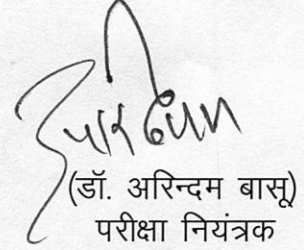 (डॉ. अरिन्दम बासू)
परीक्षा नियंत्रक